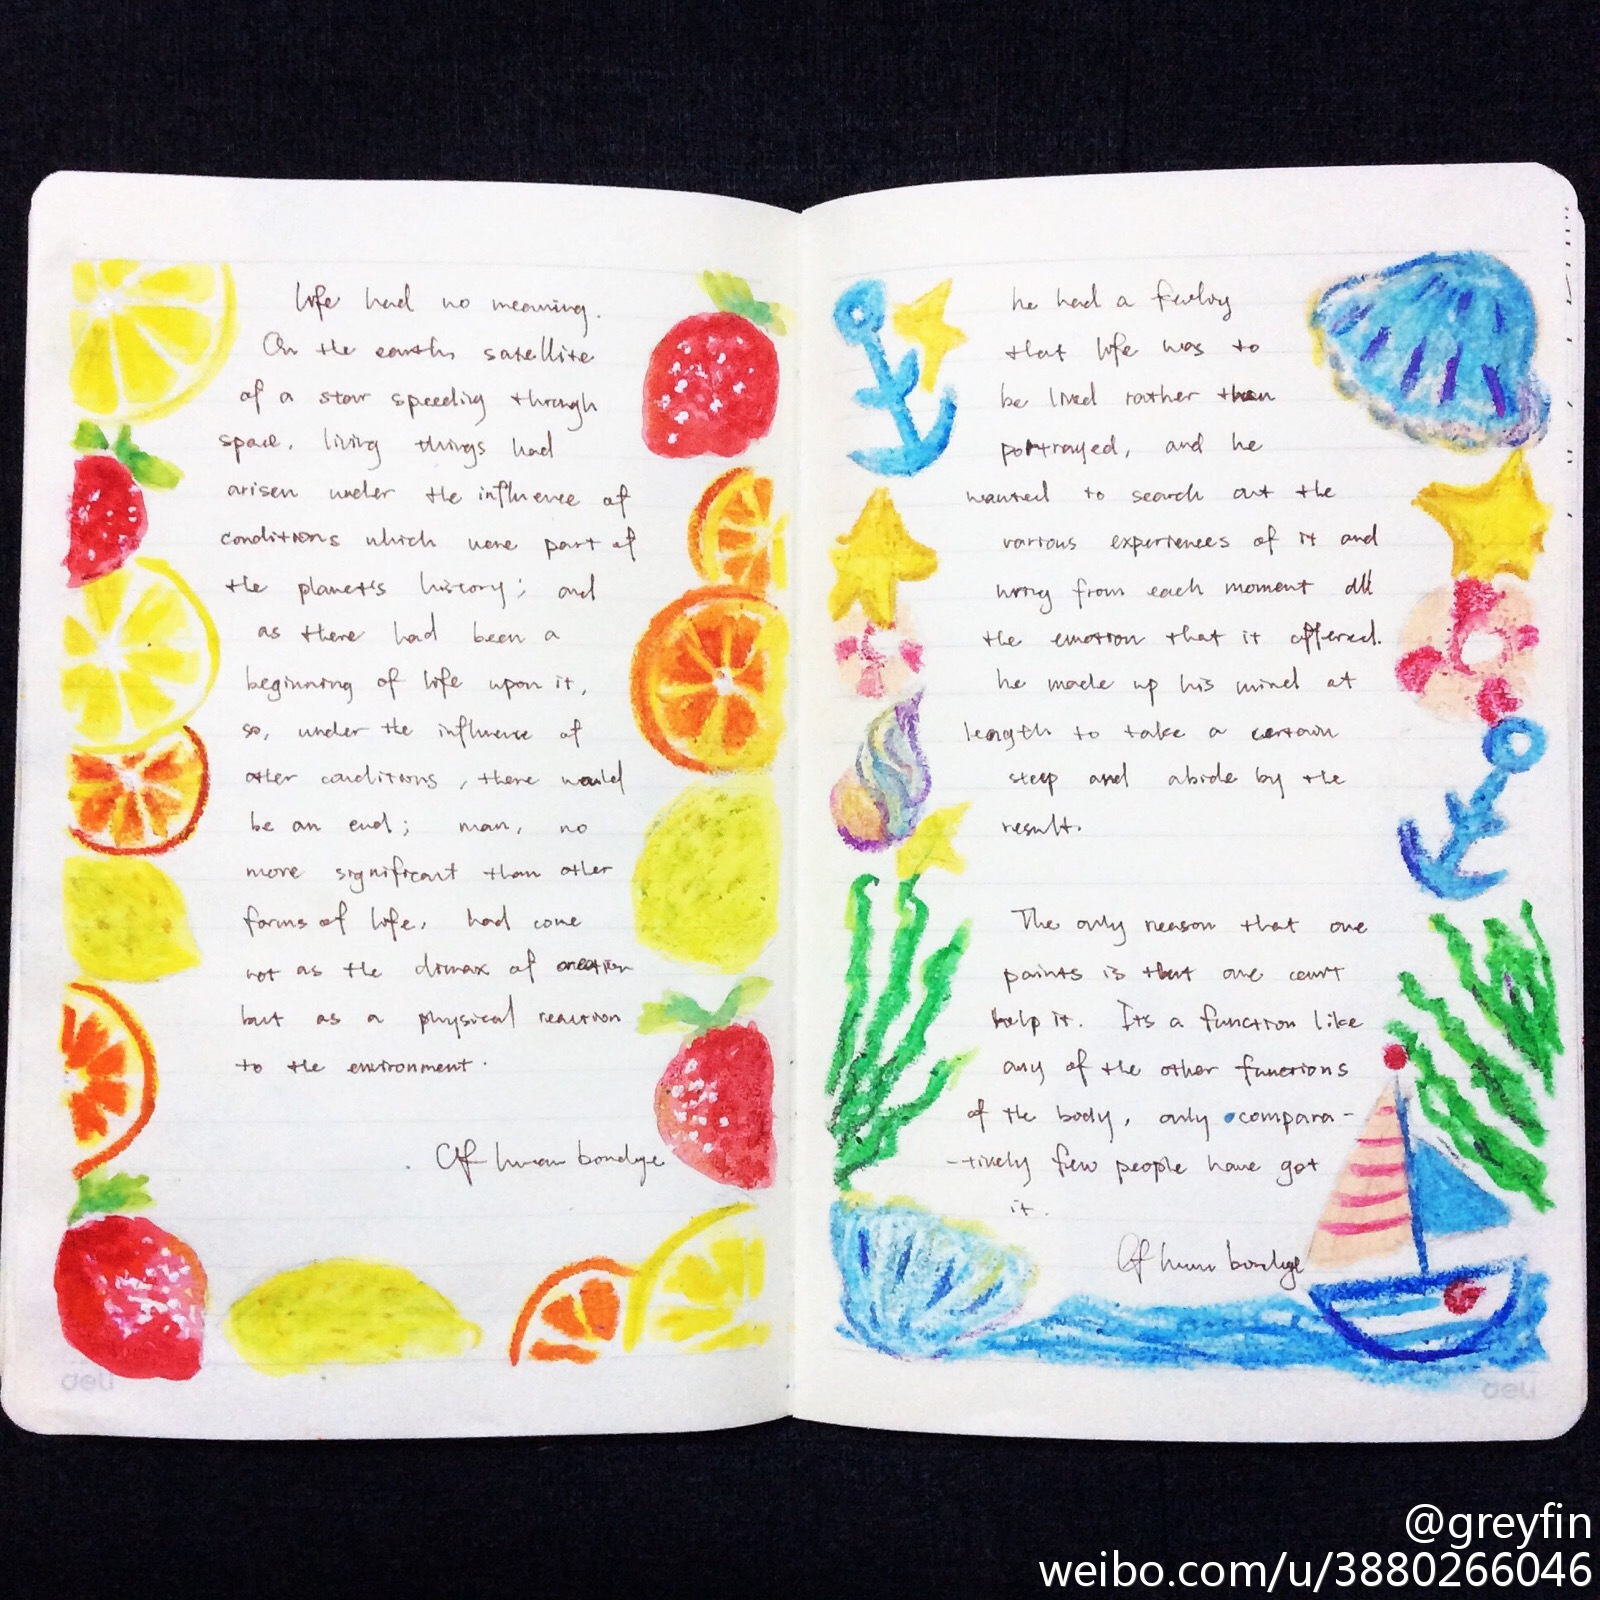 life had no meaning.
On the earth, satellite
of a star speeding through
space, living things had
arisen under the influence of
conditions which were part of
the planet's history; and
as there had been a
beginning of life upon it,
so, under the influence of
other conditions, there would
be an end; man, no
more significant than other
forms of life, had come
not as the climax of creation
but as a physical reaction
to the environment.
Of human bondage
deli
he had a feeling
that life was to
be lived rather than
portrayed, and he
wanted to search out the
various experiences of it and
wring from each moment all
the emotion that it offered.
he made up his mind at
length to take a certain
step and abide by the
result.
The only reason that one
paints is that one can't
help it. Its a function like
any of the other functions
of the body, only compara-
-tively few people have got
it.
Of human bondage
deli
@greyfin
weibo.com/u/3880266046